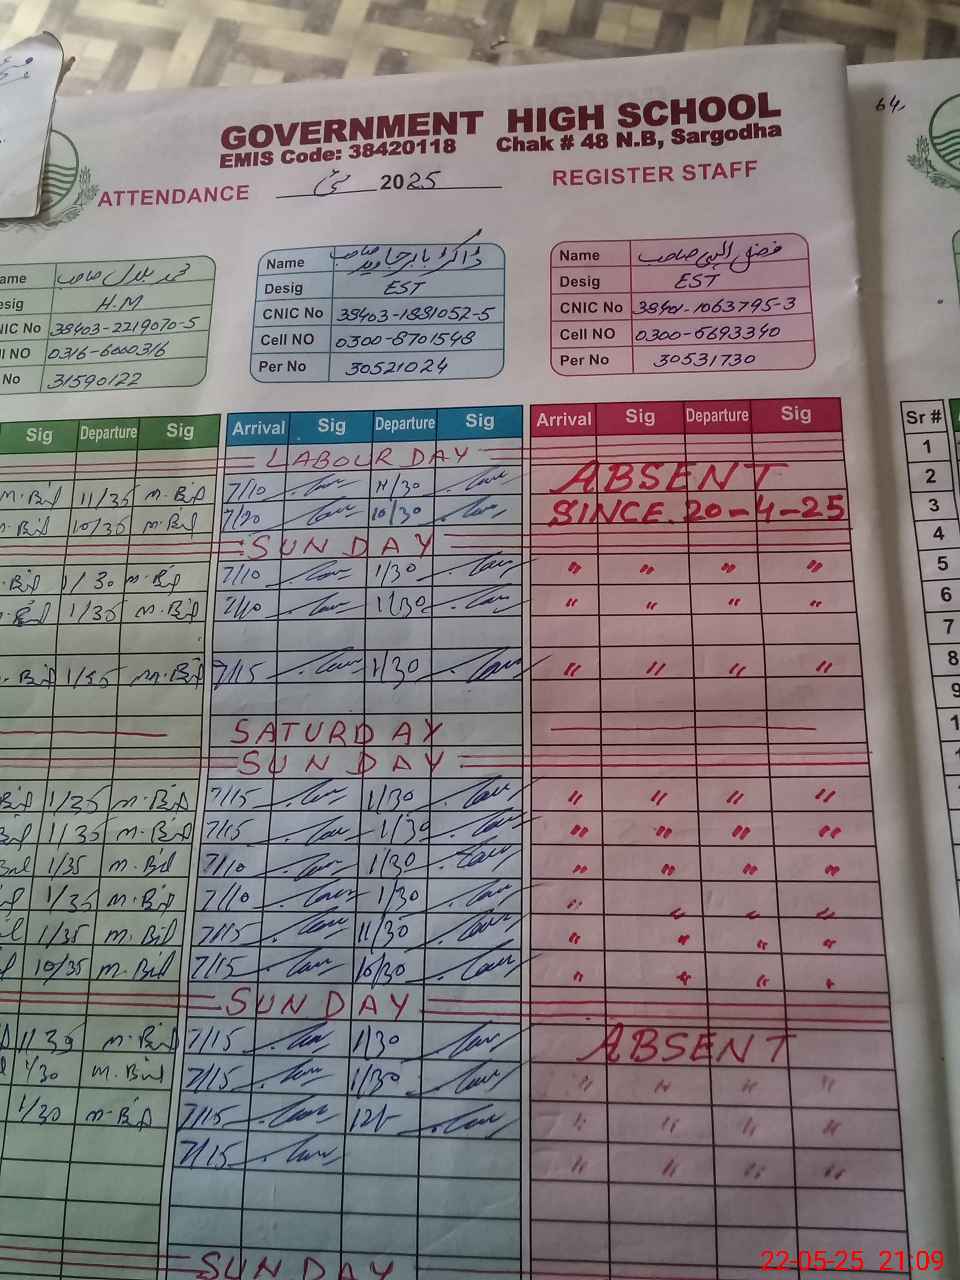 64,
GOVERNMENT HIGH SCHOOL
EMIS Code: 38420118 Chak # 48 N.B, Sargodha
ATTENDANCE مئی 2025 REGISTER STAFF
ame صاحب
esig H.M
NIC No 38403-2219070-5
ll NO 0316-6000316
No 31590122
Name ڈاکٹر بابر جاوید صاحب
Desig EST
CNIC No 38403-1881052-5
Cell NO 0300-8701548
Per No 30521024
Name فضل الہی صاحب
Desig EST
CNIC No 38401-1063795-3
Cell NO 0300-6693340
Per No 30531730
Sig Departure Sig Arrival Sig Departure Sig Arrival Sig Departure Sig Sr #
LABOUR DAY 1
M.Bil 11/35 M.Bil 7/10 11/30 ABSENT 2
M.Bil 10/35 M.Bil 7/20 10/30 SINCE. 20-4-25 3
SUNDAY 4
.Bil 1/30 M.Bil 7/10 1/30 " " " " 5
.Bil 1/35 M.Bil 7/10 1/30 " " " " 6
7
.Bil 1/35 M.Bil 7/15 1/30 " " " " 8
9
SATURDAY 1
SUNDAY 1
Bil 1/35 M.Bil 7/15 1/30 " " " "
Bil 1/35 M.Bil 7/15 1/30 " " " "
Bil 1/35 M.Bil 7/10 1/30 " " " "
1/35 M.Bil 7/10 1/30 " " " "
il 1/35 M.Bil 7/15 11/30 " " " "
10/35 M.Bil 7/15 10/30 " " " "
SUNDAY
1/35 M.Bil 7/15 1/30 ABSENT
1/30 M.Bil 7/15 1/30 " " " "
1/30 M.Bil 7/15 12/- " " " "
7/15 " " " "
SUNDAY
22-05-25 21:09